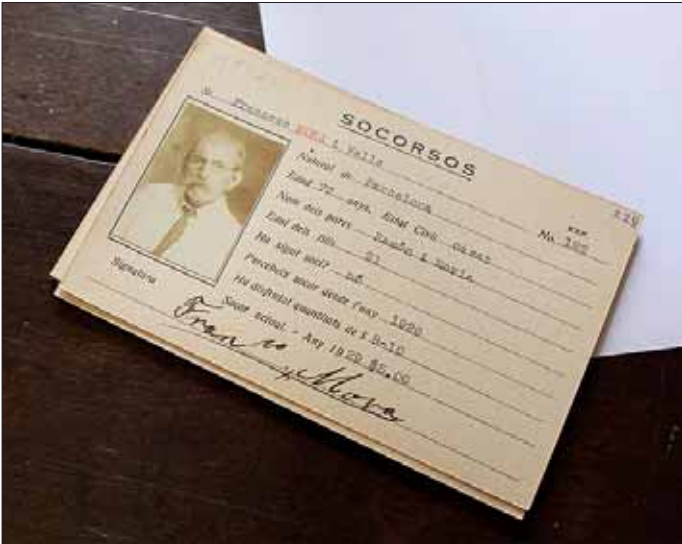 SOCORSOS
D. Francesc i Valls
Natural de Barcelona
Edat 72 anys. Estat Civil casat
No.
Nom dels pares Ramón i María
Edat dels fills 21
Ha sigut soci? no
Percibeix socor desde l'any 1926
Ha disfrutat quantitats de $ 8-10
Socor actual. - Any 1929 $5.00
Signatura
Franco Mora